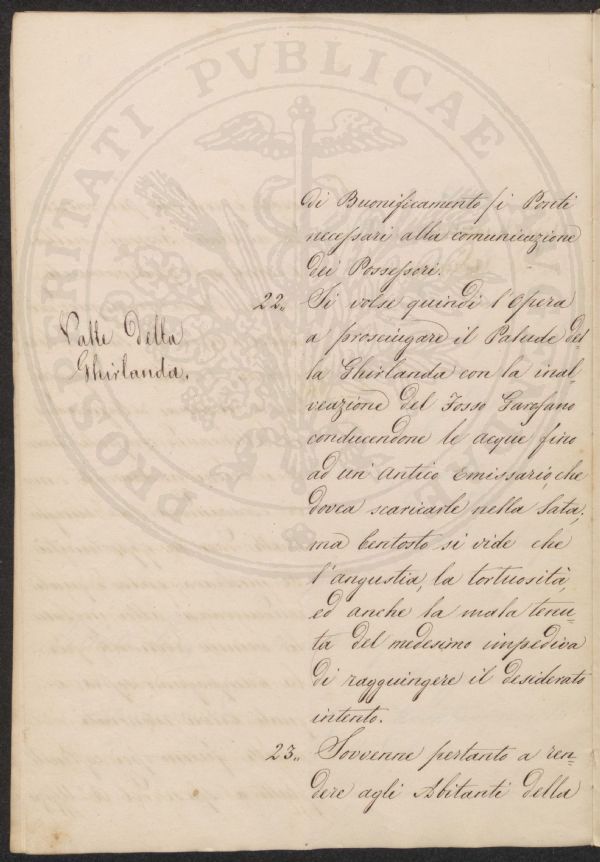 PROSPERITATI PVBLICAE
di Buonificamento, i Ponti
necessari alla comunicazione
dei Possessori.
Valle Della
Ghirlanda.
22.. Si volse quindi l'Opera
a prosciugare il Palude del-
la Ghirlanda con la inal-
veazione del Fosso Garofano
conducendone le acque fino
ad un' antico Emissario, che
dovea scaricarle nella Sata;
ma bentosto si vide che
l'angustia, la tortuosità,
ed anche la mala tenu=
ta del medesimo impediva
di raggiungere il desiderato
intento.
23.. Sovvenne pertanto a ren=
dere agli Abitanti della